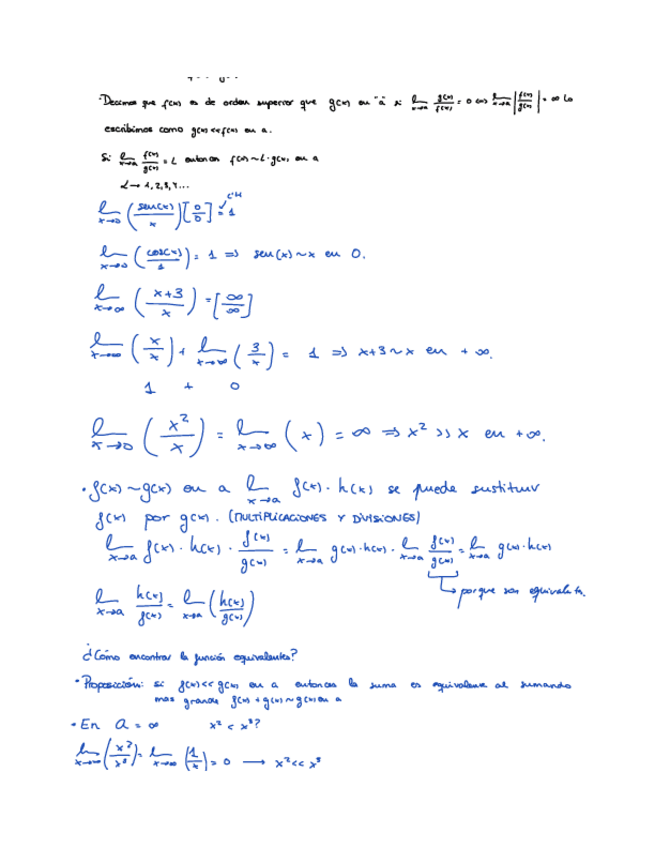 ·Decimos que f(x) es de orden superior que g(x) en "a" si lim x→a g(x)/f(x) = 0 ⇔ lim x→a |f(x)/g(x)| = ∞ Lo
escribimos como g(x) << f(x) en a.
Si lim x→a f(x)/g(x) = L entonces f(x) ~ L·g(x) en a
L → 1, 2, 3, 4...
lim x→0 (sen(x)/x) [0/0] = 1 L'H
lim x→0 (cos(x)/1) = 1 ⇒ sen(x) ~ x en 0.
lim x→∞ (x+3/x) = [∞/∞]
lim x→∞ (x/x) + lim x→∞ (3/x) = 1 ⇒ x+3 ~ x en +∞.
1 + 0
lim x→0 (x²/x) = lim x→∞ (x) = ∞ ⇒ x² >> x en +∞.
· f(x) ~ g(x) en a lim x→a f(x)·h(x) se puede sustituir
f(x) por g(x). (MULTIPLICACIONES Y DIVISIONES)
lim x→a f(x)·h(x)·f(x)/g(x) = lim x→a g(x)·h(x)·lim x→a f(x)/g(x) = lim x→a g(x)·h(x)
porque son equivalentes.
lim x→a h(x)/f(x) = lim x→a (h(x)/g(x))
¿Cómo encontrar la función equivalentes?
· Proposición: si f(x) << g(x) en a entonces la suma es equivalente al sumando
mas grande f(x) + g(x) ~ g(x) en a
· En a = ∞ x² < x³?
lim x→∞ (x²/x³) = lim x→∞ (1/x) = 0 → x² << x³